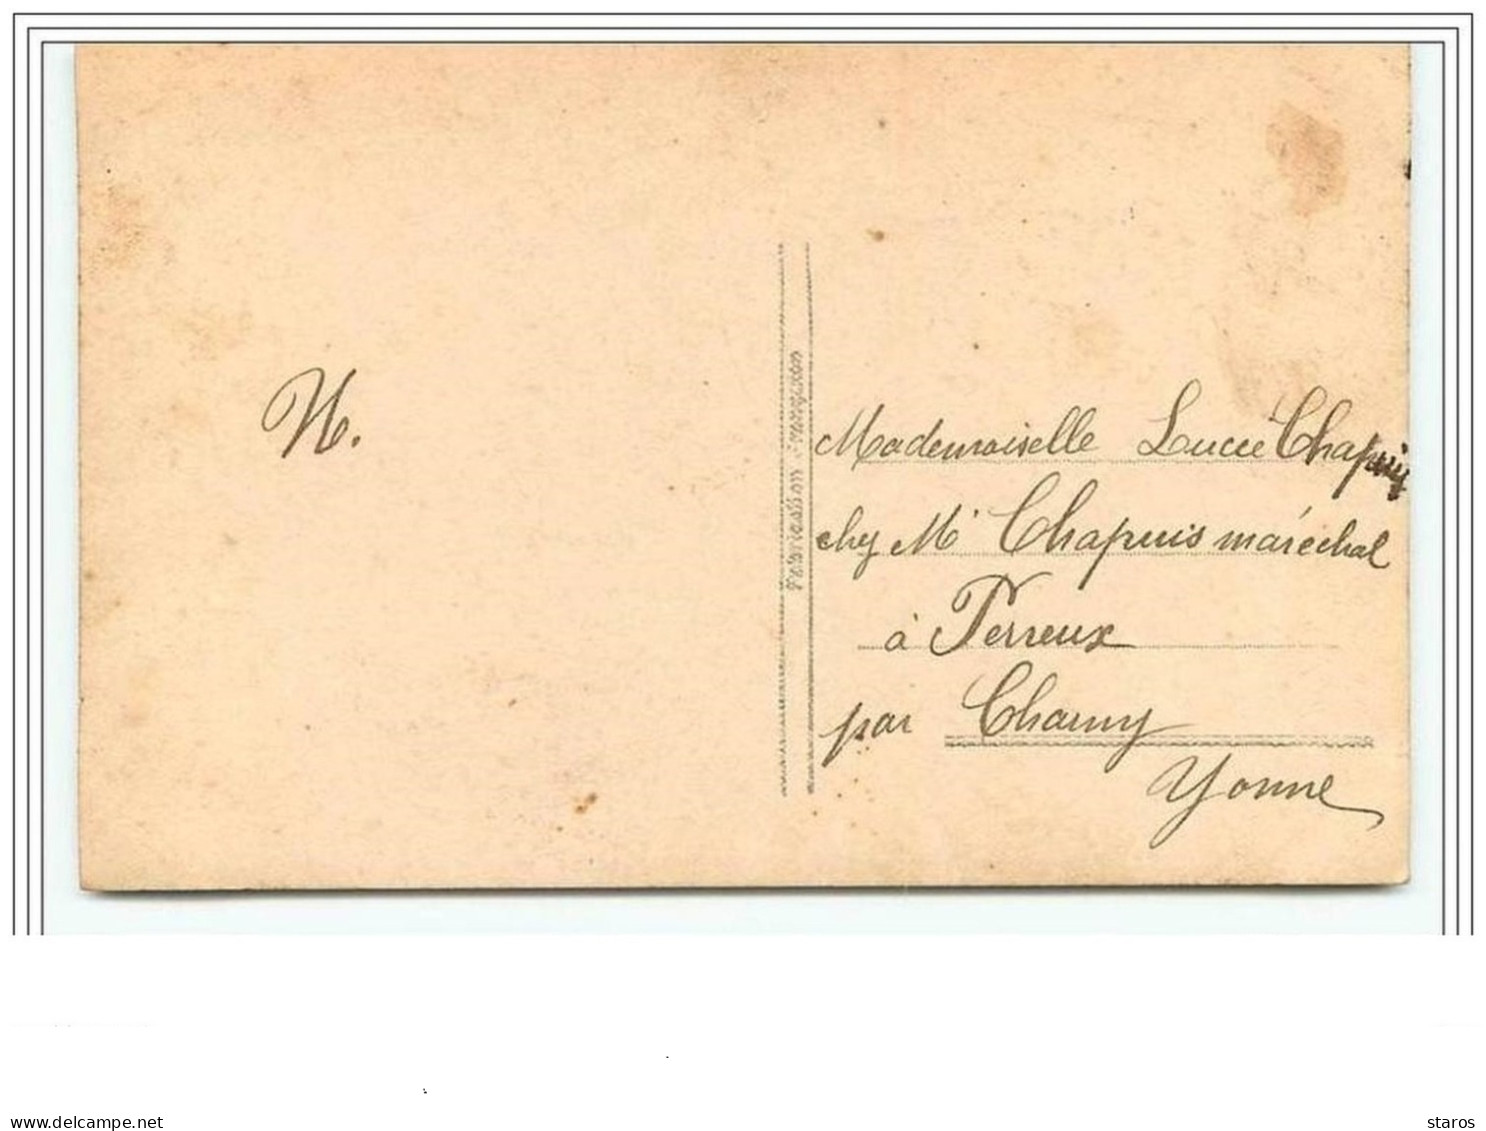 N.
Fabrication Française
Mademoiselle Lucie Chapuis
chez Mr Chapuis maréchal
à Perreux
par Charny
Yonne
delcampe.net
staros